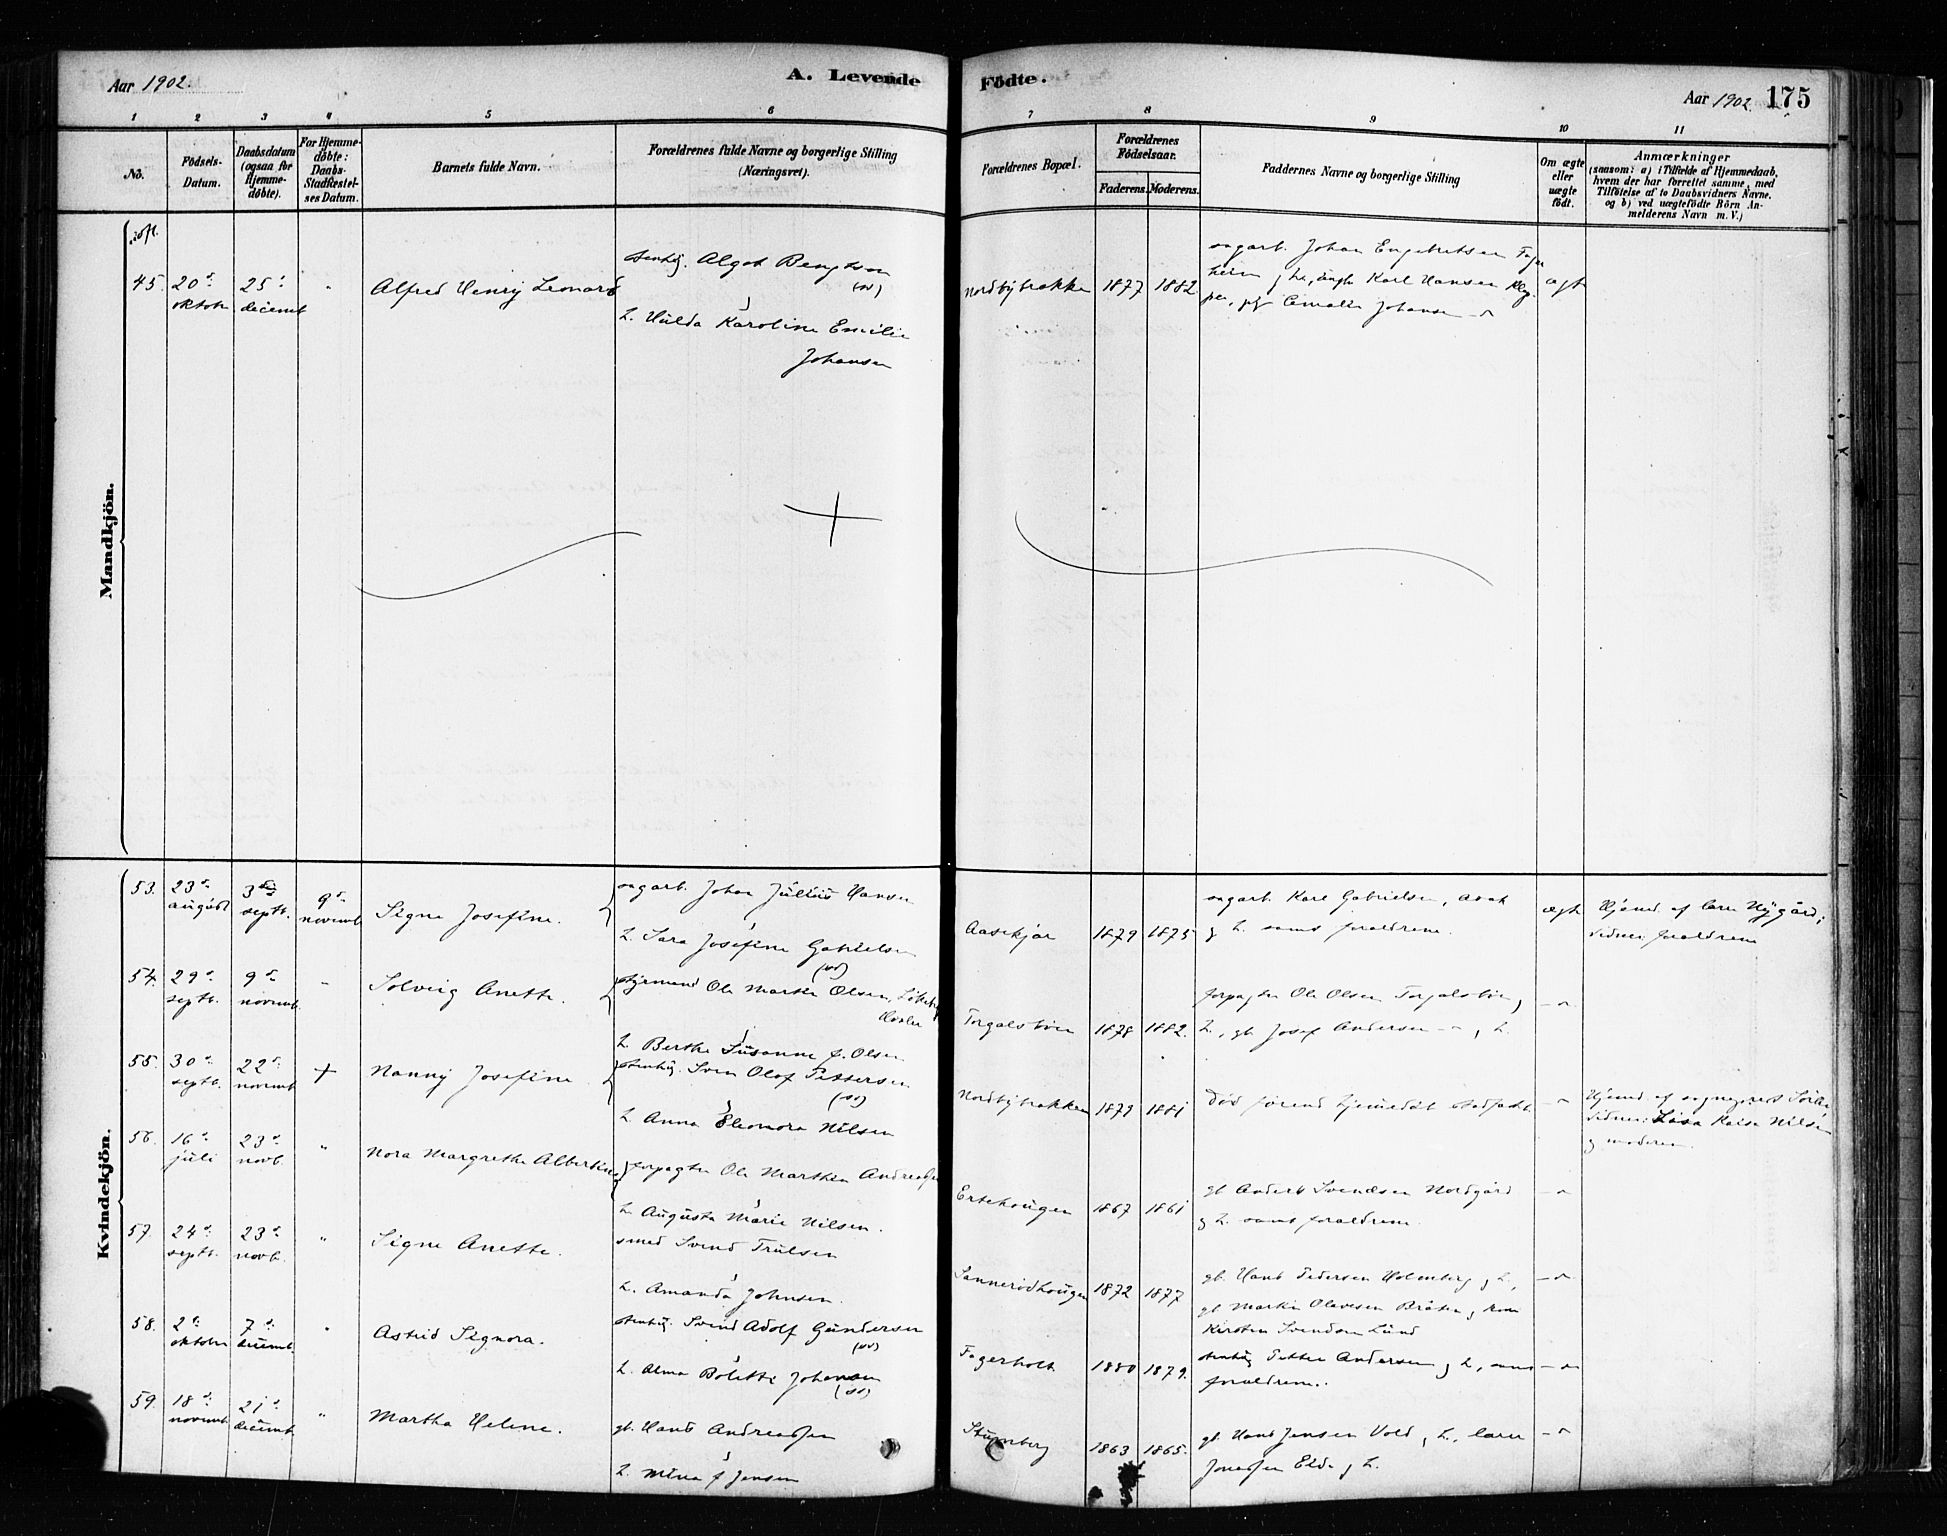 Aar 1902.
A. Levende
Födte.
Aar 1902
175
1 2 3 4 5 6 7 8 9 10 11
No.
Födsels-
Datum.
Daabsdatum
(ogsaa for
Hjemme-
döbte).
For Hjemme-
döbte:
Daabs-
Stadfæstel-
ses Datum.
Barnets fulde Navn.
Forældrenes fulde Navne og borgerlige Stilling
(Næringsvei).
Forældrenes Bopæl.
Forældrenes
Födselsaar.
Faderens.
Moderens.
Faddernes Navne og borgerlige Stilling
Om ægte
eller
uægte
födt.
Anmærkninger
(saasom: a) i Tilfælde af Hjemmedaab,
hvem der har forrettet samme, med
Tilföielse af to Daabsvidners Navne.
og b) ved uægtefödte Börn An-
melderens Navn m. V.)
Mandkjön.
45. 20de
oktober
25de
decemb
"
Alfred Henry Leonard
stenhg. Algot Bengtson
(sv)
h. Hulda Karoline Emilie
Johansen
Nordbybrække
1877
1882
sagarb. Johan Engebretsen
h., ungk Karl Hansen
Johansen
ægte
Kvindekjön.
53. 23de
august
3die
septb.
9de
novemb
Signe Josefine.
sagarb. Johan Julius Hansen
h. Sara Josefine Gabrielsen
(sv)
Aasekjær
1879
1875
sagarb. Karl Gabrielsen,
g h. samt forældrene.
ægte
Hjemd. af Nygård;
vidner: forældrene
54. 29de
septb.
9de
novemb.
"
Solveig Anette.
styrmand Ole Martin Olsen,
h. Berthe Susanne f. Olsen
Torgalsböen
1878
1882.
forpagter Ole Olsen Torgalsböen g
h., gb. Josef Andersen g h.
55. 30de
septb.
22de
novemb
+
Nanny Josefine
stenhg. Sven Olof Pettersen
(sv)
h. Anna Eleonora Nilsen
Nordbybrækken
1879
1881
död förend hjemmedåb stadfæstet
Hjemd af
vidner: Lisa Kaisa Nilsen
g moderen.
56. 16de
juli
23de
novb.
"
Nora Margrethe Albertine
forpagter Ole Marthin Andreassen
h. Augusta Marie Nilsen.
Ertehougen
1867
1861
gb Anders Svendsen Nordgård
g h. samt forældrene.
57. 24de
septb.
23de
novb.
"
Signe Anette.
smed Svend Trulsen
h. Amanda Johnsen.
Sannerödhougen
1872
1877
gb. Hans Pedersen Holmberg g h.,
gb Martin Olavesen Bråten g kone
Kirsten Svendsen Lund
58. 2de
oktober
7de
decemb.
"
Astrid Signora.
stenhg. Svend Adolf Gundersen
(sv)
h. Alma Bolette Johansen
(sv)
Fagerholt
1880
1879.
stenhg Petter Andersen g h., samt
forældrene.
59. 18de
novemb.
21de
decemb.
"
Martha Helene.
gb. Hans Andreassen
h. Mina f Jensen
1863
1865.
gb. Hans Jensen Vold g h.,
g h.